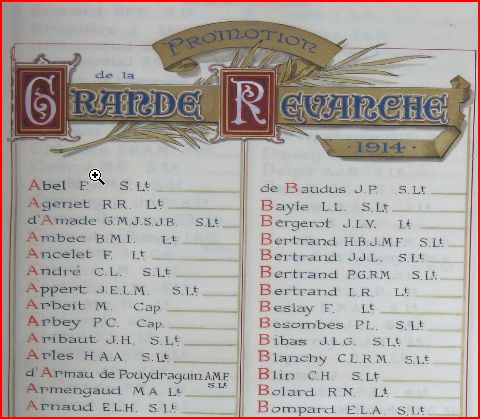 PROMOTION
de la
GRANDE REVANCHE
1914
Abel F. S.Lt
Agenet R.R. Lt
d'Amade G.M.J.S.J.B. S.Lt
Ambec B.M.I. Lt
Ancelet F. Lt
André C.L. S.Lt
Appert J.E.L.M. S.Lt
Arbeit M. Cap
Arbey P.C. Cap.
Aribaut J.H. S.Lt
Arles H.A.A. S.Lt
d'Armau de Pouydraguin A.M.F. S.Lt
Armengaud M.A. Lt
Arnaud E.L.H. S.Lt
de Baudus J.P. S.Lt
Bayle L.L. S.Lt
Bergerot J.L.V. Lt
Bertrand H.B.J.M.F. S.Lt
Bertrand J.J.L. S.Lt
Bertrand P.G.R.M. S.Lt
Bertrand L.R. Lt
Beslay F. Lt
Besombes P.L. S.Lt
Bibas J.L.G. S.Lt
Blanchy C.L.R.M. S.Lt
Blin C.H. S.Lt
Bolard R.N. Lt
Bompard E.L.A. S.Lt